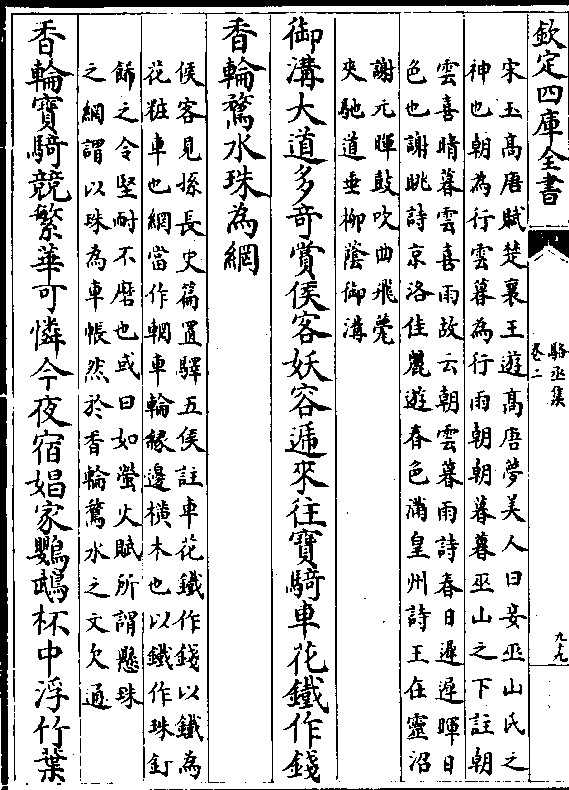 欽定四庫全書
駱丞集
卷二
九九
宋玉髙唐賦楚襄王遊髙唐夢美人曰妾巫山氏之
神也朝為行雲暮為行雨朝朝暮暮巫山之下註朝
雲喜晴暮雲喜雨故云朝雲暮雨詩春日遲遲暉日
色也謝眺詩京洛佳麗遊春色滿皇州詩王在靈沼
謝元暉鼓吹曲飛甍
夾馳道垂柳蔭御溝
御溝大道多竒賞侯客妖容遞來往寶騎車花鐵作錢
香輪騖水珠為網
侯客見孫長史篇置驛五侯註車花鐵作錢以鐵為
花粧車也網當作輞車輪緣邊横木也以鐵作珠釘
餙之令堅耐不磨也或曰如螢火賦所謂懸珠
之網謂以珠為車帳然於香輪騖水之文欠通
香輪寶騎競繁華可憐今夜宿娼家鸚鵡杯中浮竹葉